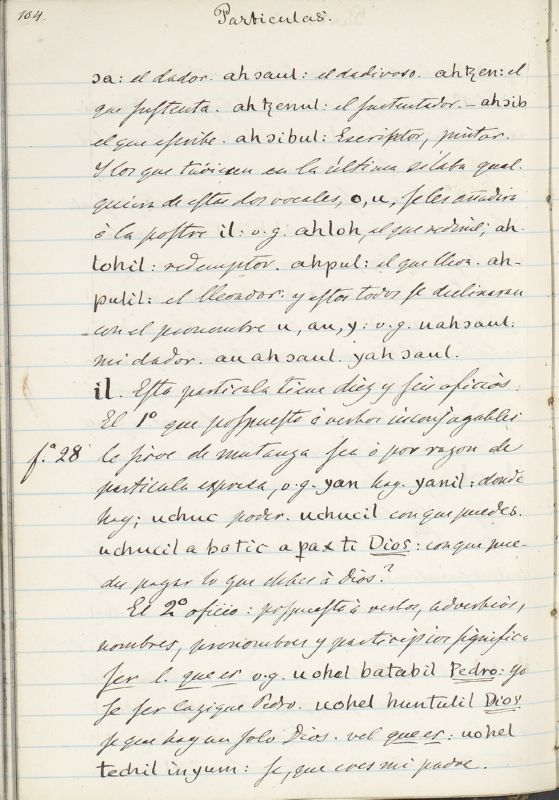 104.
Particulas.
ɔa: el dador. ahɔaul: el dadivoso. ahtzen: el
que sustenta. ahtzenul: el sustentador. – ahɔib
el que escribe. ahɔibul: Escriptor, pintor.
Y los que tuvieren en la última silaba qual-
quiera de estas dos vocales, o, u, se les añadira
à la postre il: v.g. ahloh, el que redime; ah-
lohil: redemptor. ahpul: el que lleva. ah-
pulil: el llevador: y estos todos se declinaran
con el pronombre u, au, y: v.g. uahɔaul:
mi dador. auahɔaul. yahɔaul.
il. Esta particula tiene diez y seis oficios.
El 1º que pospuesto à verbos inconjugables
f.ª 28 le sirve de mutanza sea ó por razon de
particula expresa, v.g. yan hay. yanil: donde
hay; uchuc poder. uchucil con que puedes.
uchucil a botic a pax ti Dios: con que pue-
des pagar lo que debes à Dios?
El 2º oficio: pospuesto à verbos, adverbios,
nombres, pronombres y participios significa
ser l. que es v.g. uohel batabil Pedro: yo
se ser cazique Pedro. uohel huntulil Dios
se que hay un solo Dios. vel que es: uohel
techil inyum: se, que eres mi padre.